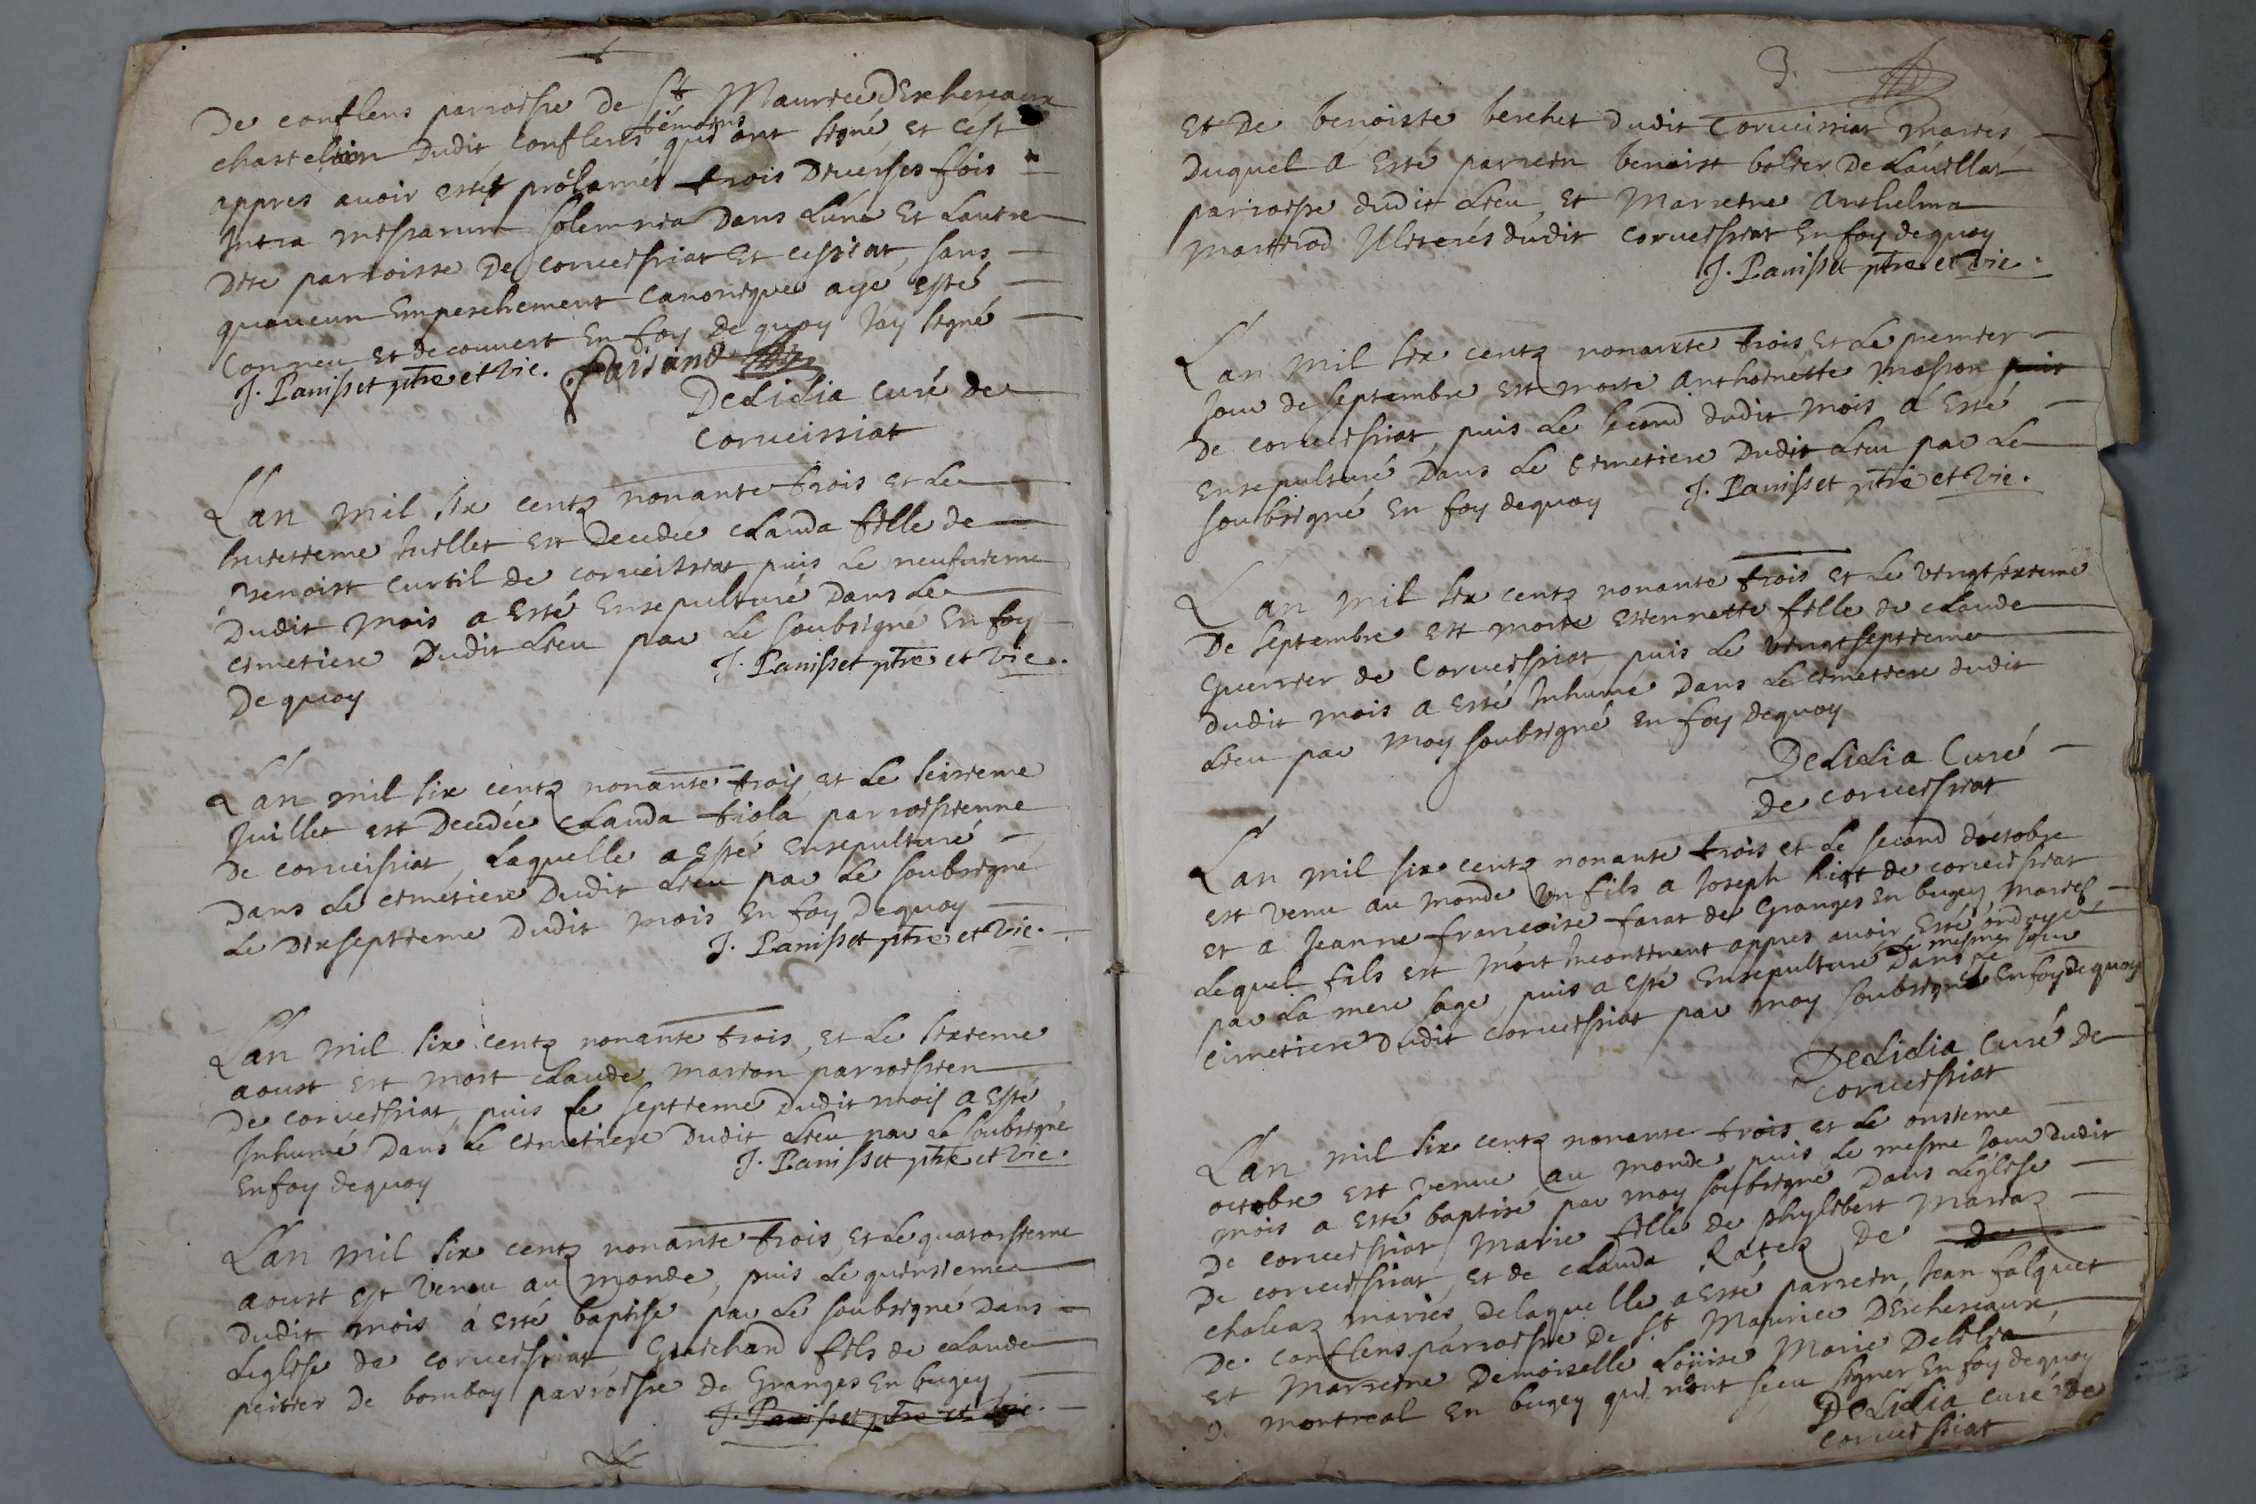 De conflens parroisse de St Maurice dEschereaux
chastelain dudit Conflens témoins qui ont signé et cest
appres avoir estés proclamés trois diverses fois
Intra missarum solemnia dans lune et lautre
dite parroisse de corveissiat et cissiat, sans
quaucun empeschement canonique aye esté
conneu et decouvert En foy de quoy Jay signé
J. Panisset ptre et vic.
DeLiLia curé de
corveissiat
Lan mil six centz nonante trois et le
huitieme Juillet est decedee clauda fille de
Benoist curtil de corveissiat puis le neufvieme
dudit mois a esté ensepulturé dans le
cimetiere dudit lieu par le soubsigné en foy
De quoy
J. Panisset ptre et vic.
Lan mil six centz nonante trois, et le seizieme
Juillet est decedée clauda fiola parroissienne
de corveissiat, laquelle a esté ensepulturé
dans le cimetiere dudit lieu par le soubsigné
le dixseptieme dudit mois en foy dequoy
J. Panisset ptre et vic.
Lan mil six centz nonante trois, et le sixieme
aoust est mort claude marion parroissien
de corveissiat, puis le septieme dudit mois a esté
Inhumé dans le cimetiere dudit lieu par le soubsigné
En foy dequoy
J. Panisset ptre et vic.
Lan mil six centz nonante trois, et le quatorsieme
aoust est venu au monde, puis le quinsieme
dudit mois a esté baptise par le soubsigné dans
leglise de corveissiat Guichard fils de claude
peitier de bomboy parroisse de Granges en bugey
J. Panisset ptre et vic.
3.
Et De benoiste berchet dudit corveissiat mariés
duquel a esté parrein benoist bolier de Lavillat
parroisse dudit lieu, et Marreine Anthelma
marterod Iliterés dudit corveissiat En foy dequoy
J. Panisset ptre et vic.
Lan mil six centz nonante trois, et le premier
Jour de septembre est morte anthoinette masson
de corveissiat, puis le second dudit mois a esté
ensepulturé dans le cimetiere dudit lieu par le
soubsigné en foy dequoy
J. Panisset ptre et vic.
Lan mil six centz nonante trois et le vingtsixieme
De septembre est morte estiennette fille de claude
Guerrier de Corveissiat, puis le vingtseptieme
dudit mois a esté Inhumé dans le cimetiere dudit
lieu par moy soubsigné en foy dequoy
DeLiLia Curé
de corveissiat
Lan mil six centz nonante trois et le second doctobre
est venu au monde un fils a Joseph de corveissiat
et a Jeanne francoise farat de Granges en bugey mariés
lequel fils est mort incontinent appres avoir esté ondoyé
par la mere sage, puis a esté ensepulturé le mesme jour dans le
cimetiere dudit corveissiat par moy soubsigné en foy de quoy
DeLiLia Curé de
corveissiat
Lan mil six centz nonante trois et le onsieme
octobre est venue au monde, puis le mesme Jour dudit
mois a esté baptisé par moy soubsigné dans leglise
de corveissiat Marie fille de phylibert mariaz
de corveissiat, et de clauda Ratez de de
chaleaz mariés, de laquelle a esté parrein, Jean falquet
de conflens parroisse de St Maurice dEschereaux,
et Marreine Demoiselle Loüise Marie Delilia
de montreal en bugey qui nont sceu signer En foy dequoy
DeLiLia curé de
corveissiat